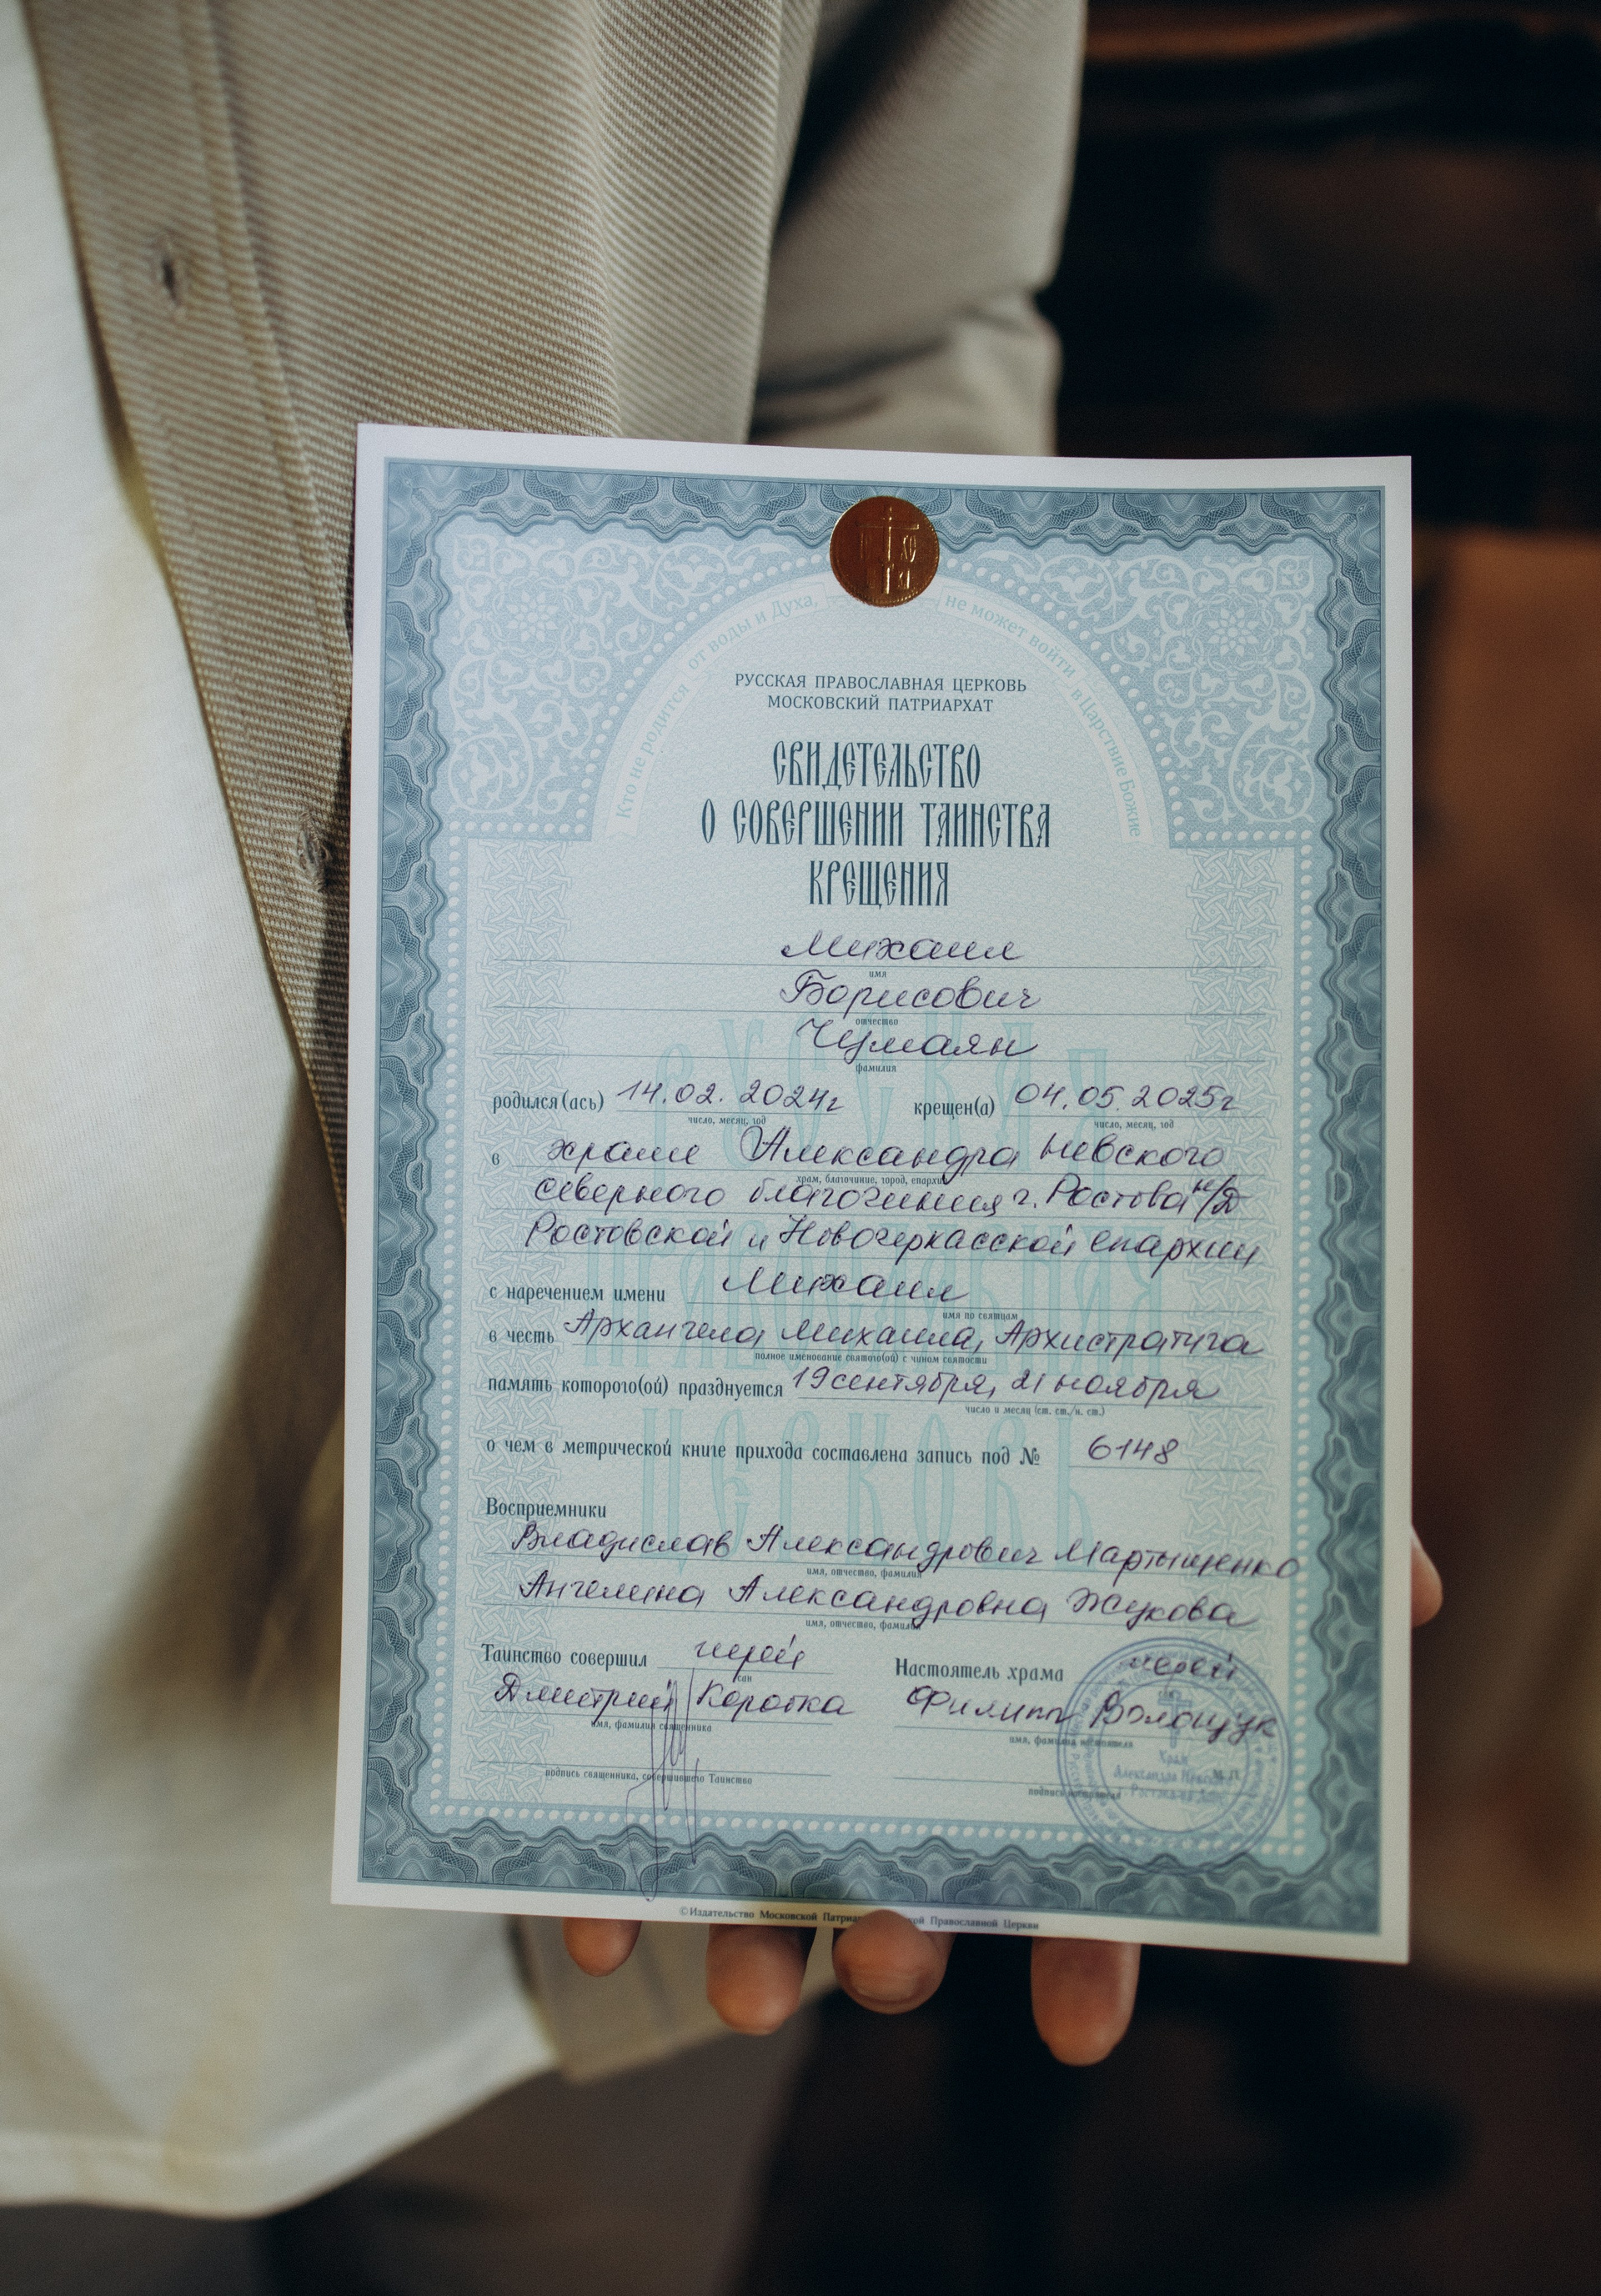 Кто не родится от воды и Духа, не может войти в Царствие Божие
РУССКАЯ ПРАВОСЛАВНАЯ ЦЕРКОВЬ
МОСКОВСКИЙ ПАТРИАРХАТ
СВИДЕТЕЛЬСТВО
О СОВЕРШЕНИИ ТАИНСТВА
КРЕЩЕНИЯ
Михаил
имя
Борисович
отчество
Чумаян
фамилия
родился(ась) 14.02.2024г крещен(а) 04.05.2025г
число, месяц, год число, месяц, год
в храме Александра Невского
храм, благочиние, город, епархия
северного благочиния г. Ростова н/Д
Ростовской и Новочеркасской епархии
с наречением имени Михаил
имя по святцам
в честь Архангела Михаила, Архистратига
полное именование святого(ой) с чином святости
память которого(ой) празднуется 19 сентября, 21 ноября
число и месяц (ст. ст./н. ст.)
о чем в метрической книге прихода составлена запись под № 6148
Восприемники
Владислав Александрович Мартыщенко
имя, отчество, фамилия
Ангелина Александровна Жукова
имя, отчество, фамилия
Таинство совершил иерей Настоятель храма иерей
сан
Дмитрий Коротка Филипп Волощук
имя, фамилия священника имя, фамилия настоятеля
подпись священника, совершившего Таинство подпись настоятеля
М.П.
Храм
Александра Невского
г. Ростов-на-Дону
© Издательство Московской Православной Церкви
РУССКАЯ
ПРАВОСЛАВНАЯ
ЦЕРКОВЬ